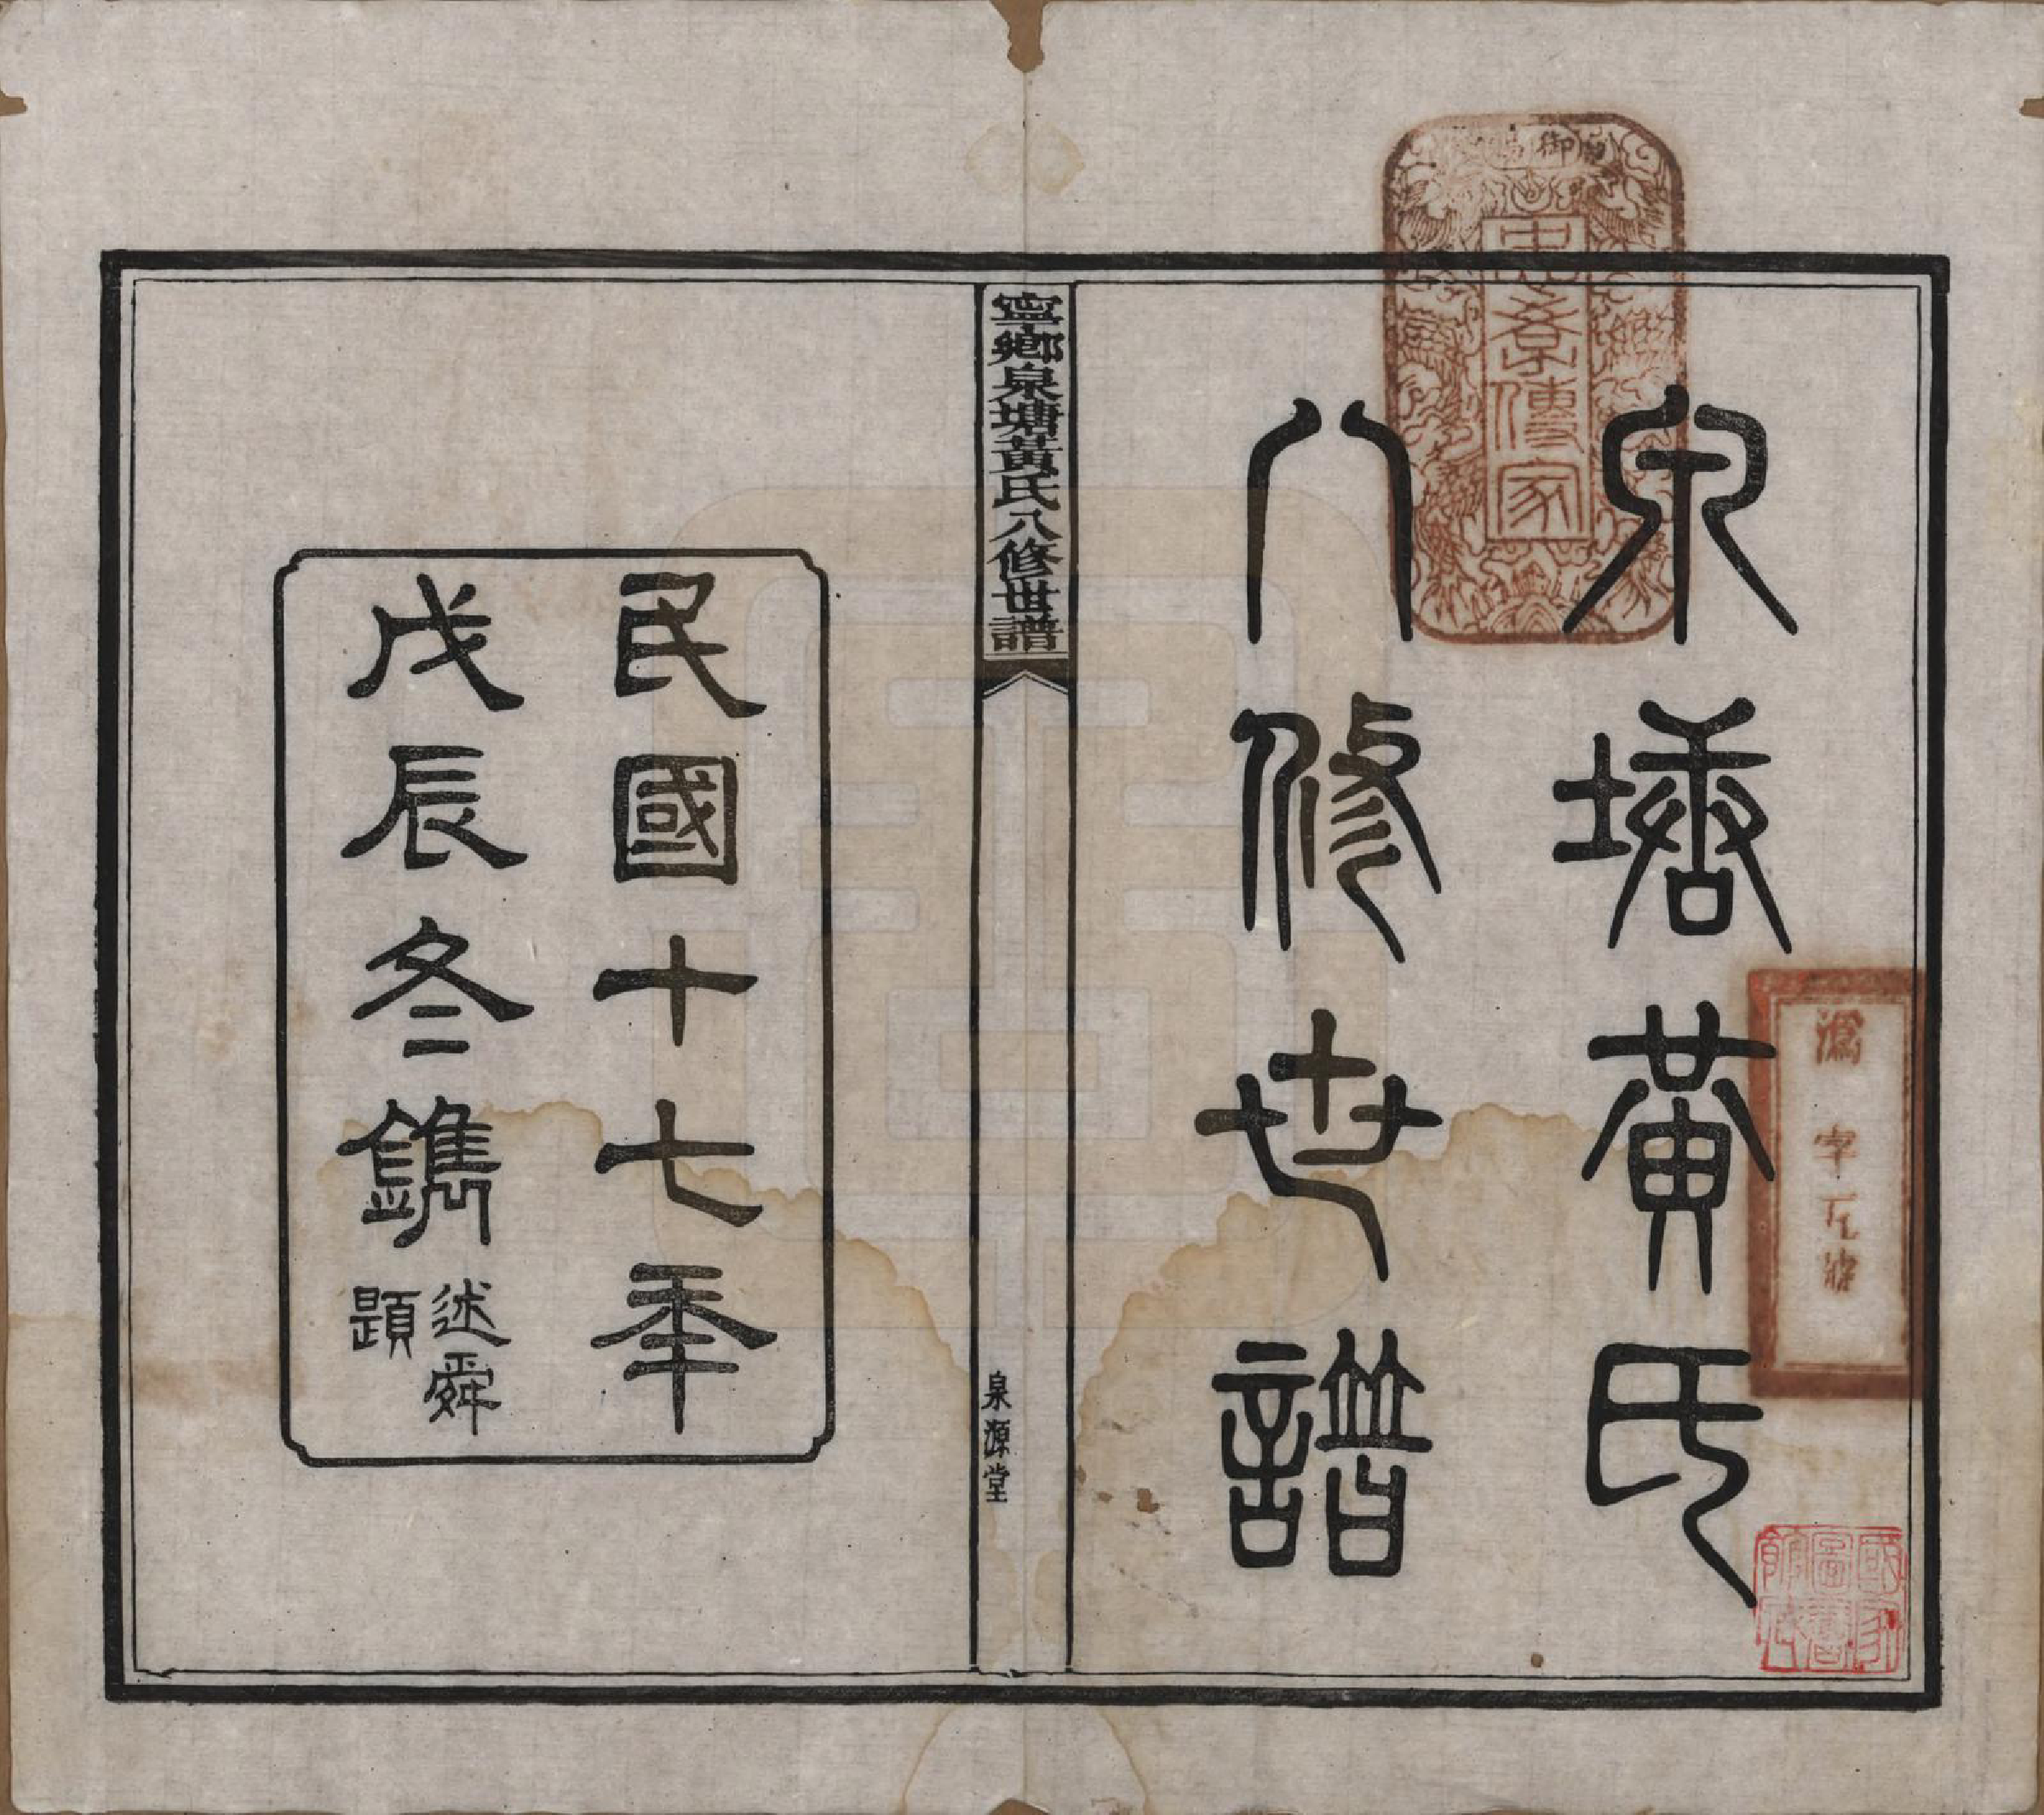 泉塘黃氏
八修世譜
御賜
忠孝傳家
溈字
國家
圖書
館藏
寧鄉泉塘黃氏八修世譜
泉源堂
民國十七年
戊辰冬鐫
述舜
題